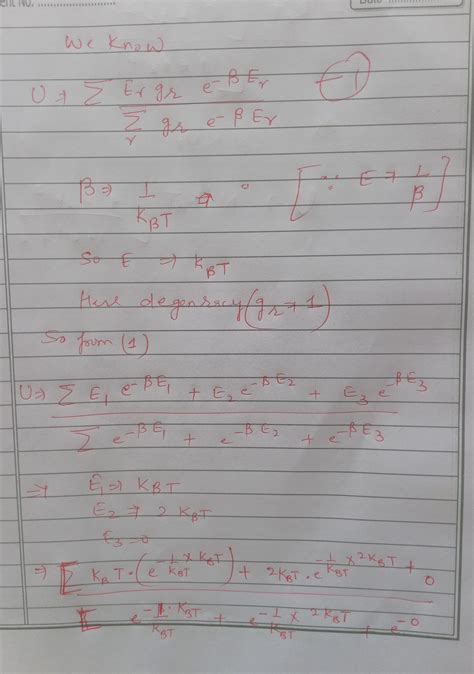 ent No.
Date
We know
U ⇒ Σ Er gr e^-βEr / Σr gr e^-βEr —(1)
β ⇒ 1/KBT [∵ E → 1/β]
So E ⇒ KBT
Here degenracy (gr → 1)
So from (1)
U ⇒ Σ E1 e^-βE1 + E2 e^-βE2 + E3 e^-βE3 / Σ e^-βE1 + e^-βE2 + e^-βE3
⇒ E1 ⇒ KBT
E2 ⇒ 2 KBT
E3 = 0
⇒ Σ KBT·(e^-1/KBT × KBT) + 2KBT·e^-1/KBT × 2KBT + 0 / Σ e^-1/KBT · KBT + e^-1/KBT × 2KBT + e^-0